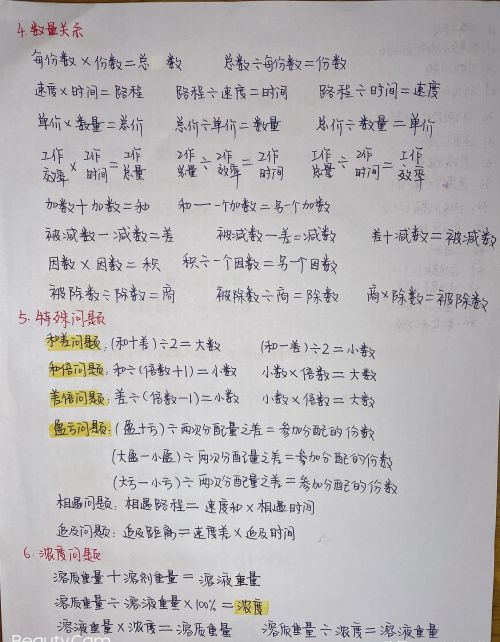 4.数量关系
每份数×份数=总 数 总数÷每份数=份数
速度×时间=路程 路程÷速度=时间 路程÷时间=速度
单价×数量=总价 总价÷单价=数量 总价÷数量=单价
工作效率×工作时间=工作总量 工作总量÷工作效率=工作时间 工作总量÷工作时间=工作效率
加数+加数=和 和-一个加数=另一个加数
被减数-减数=差 被减数-差=减数 差+减数=被减数
因数×因数=积 积÷一个因数=另一个因数
被除数÷除数=商 被除数÷商=除数 商×除数=被除数
5.特殊问题
和差问题:(和+差)÷2=大数 (和-差)÷2=小数
和倍问题:和÷(倍数+1)=小数 小数×倍数=大数
差倍问题:差÷(倍数-1)=小数 小数×倍数=大数
盈亏问题:(盈+亏)÷两次分配量之差=参加分配的份数
(大盈-小盈)÷两次分配量之差=参加分配的份数
(大亏-小亏)÷两次分配量之差=参加分配的份数
相遇问题:相遇路程=速度和×相遇时间
追及问题:追及距离=速度差×追及时间
6.浓度问题
溶质重量+溶剂重量=溶液重量
溶质重量÷溶液重量×100%=浓度
溶液重量×浓度=溶质重量 溶质重量÷浓度=溶液重量
BeautyCam